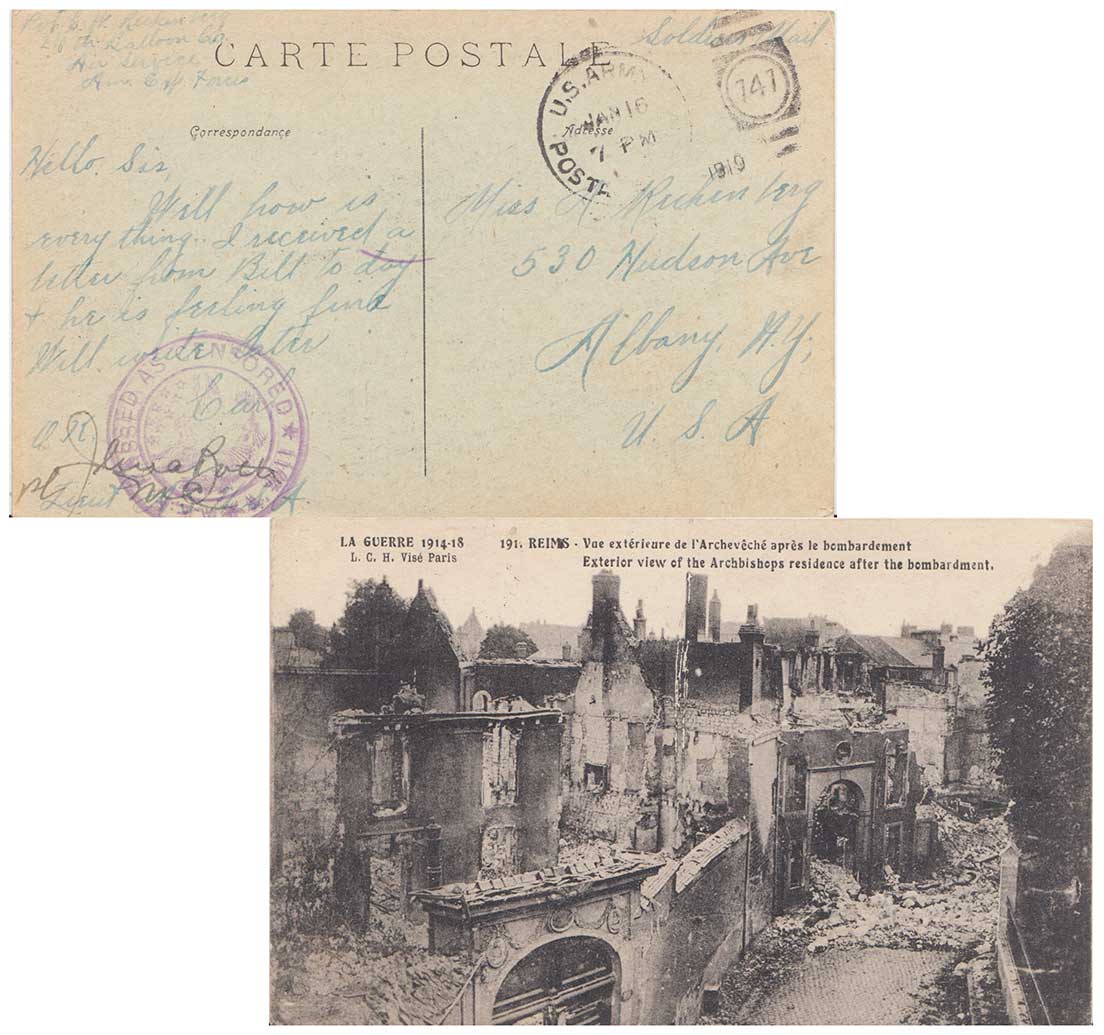 26th Balloon Co.
Air Service
Am. Ex. Forces
Soldiers Mail
CARTE POSTALE
U.S. ARMY
POST
JAN 16
7 PM
1919
741
Correspondance
Adresse
Hello. Sis,
Well how is
every thing. I received a
letter from Bill to day
+ he is feeling fine
Will write later
Carl
Miss A Reckenberg
530 Hudson Ave
Albany, N.Y.
U. S. A
PASSED AS CENSORED
OK
Lieut
LA GUERRE 1914-18
L. C. H. Visé Paris
191. REIMS - Vue extérieure de l'Archevêché après le bombardement
Exterior view of the Archbishops residence after the bombardment.